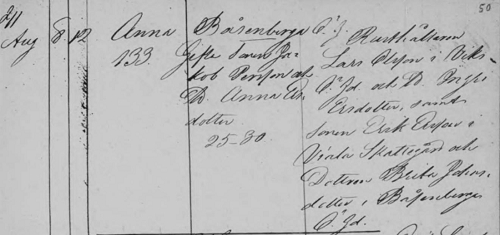 211
50
Aug 8 12
Anna
133
Båsenberga
Gifte Sonen Ja-
kob Persson och
H. Anna Ers-
dotter
25-30
Rusthållaren
Lars Olsson i Viks-
och H. Inga
Ersdotter, samt
Sonen Erik Ersson i
Skattegård och
Dottern Brita Johans-
dotter i Båsenberga